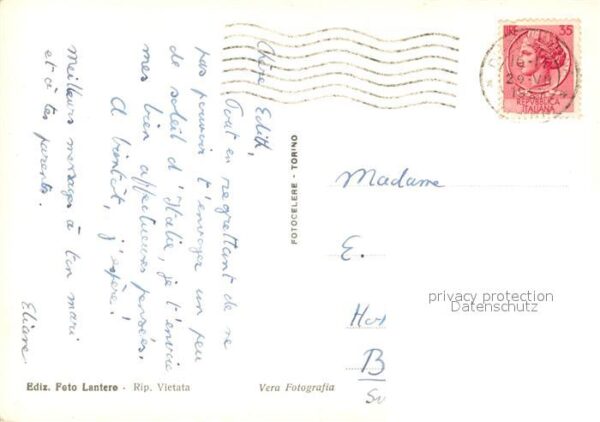 Chère Edith,
Tout en regrettant de ne
pas pouvoir t'envoyer un peu
de soleil d'Italie, je t'envoie
mes bien affectueuses pensées.
A bientôt, j'espère!
Meilleurs messages à ton mari
et à tes parents.
Eliane
FOTOCELERE - TORINO
LIRE 35
REPVBBLICA
ITALIANA
Madame
E.
privacy protection
Datenschutz
B
Ediz. Foto Lantero - Rip. Vietata
Vera Fotografia